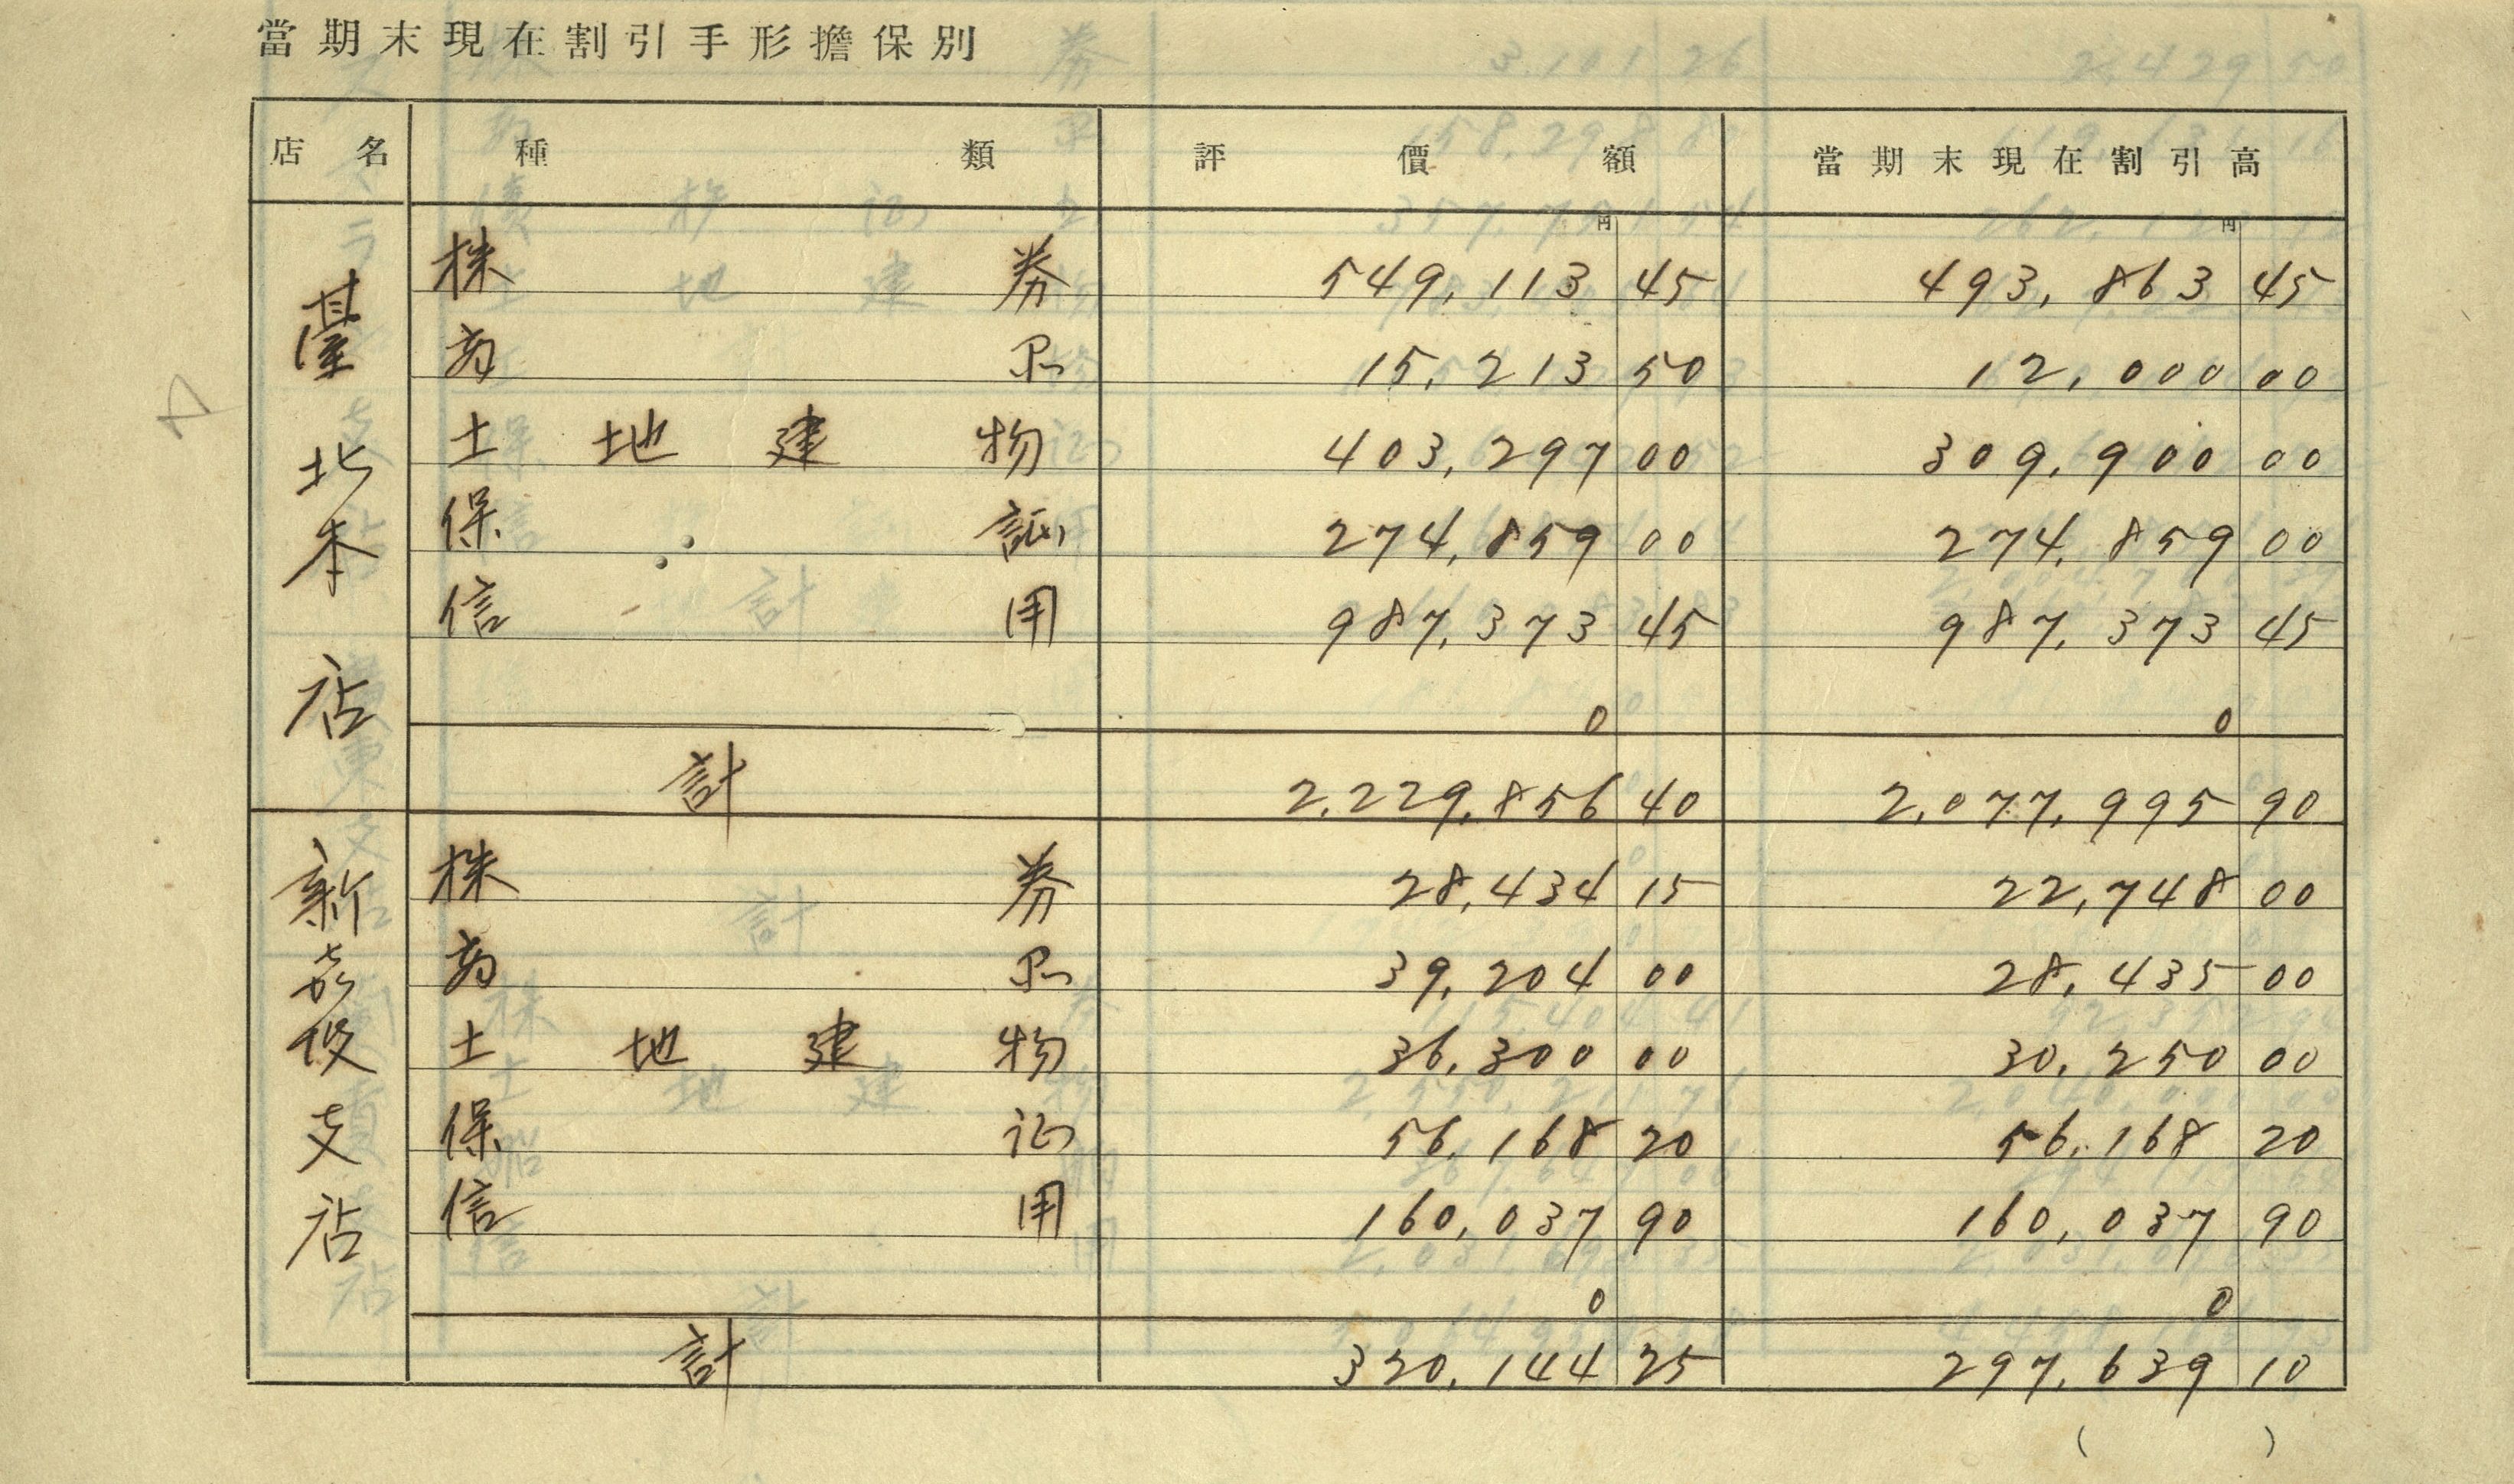 當期末現在割引手形擔保別
店名 種類 評價額 當期末現在割引高
円 円
臺北本店
株券 549,113 45 493,863 45
商品 15,213 50 12,000 00
土地建物 403,297 00 309,900 00
保証 274,859 00 274,859 00
信用 987,373 45 987,373 45
0 0
計 2,229,856 40 2,077,995 90
新嘉坡支店
株券 28,434 15 22,748 00
商品 39,204 00 28,435 00
土地建物 36,300 00 30,250 00
保证 56,168 20 56,168 20
信用 160,037 90 160,037 90
0 0
計 320,144 25 297,639 10
( )